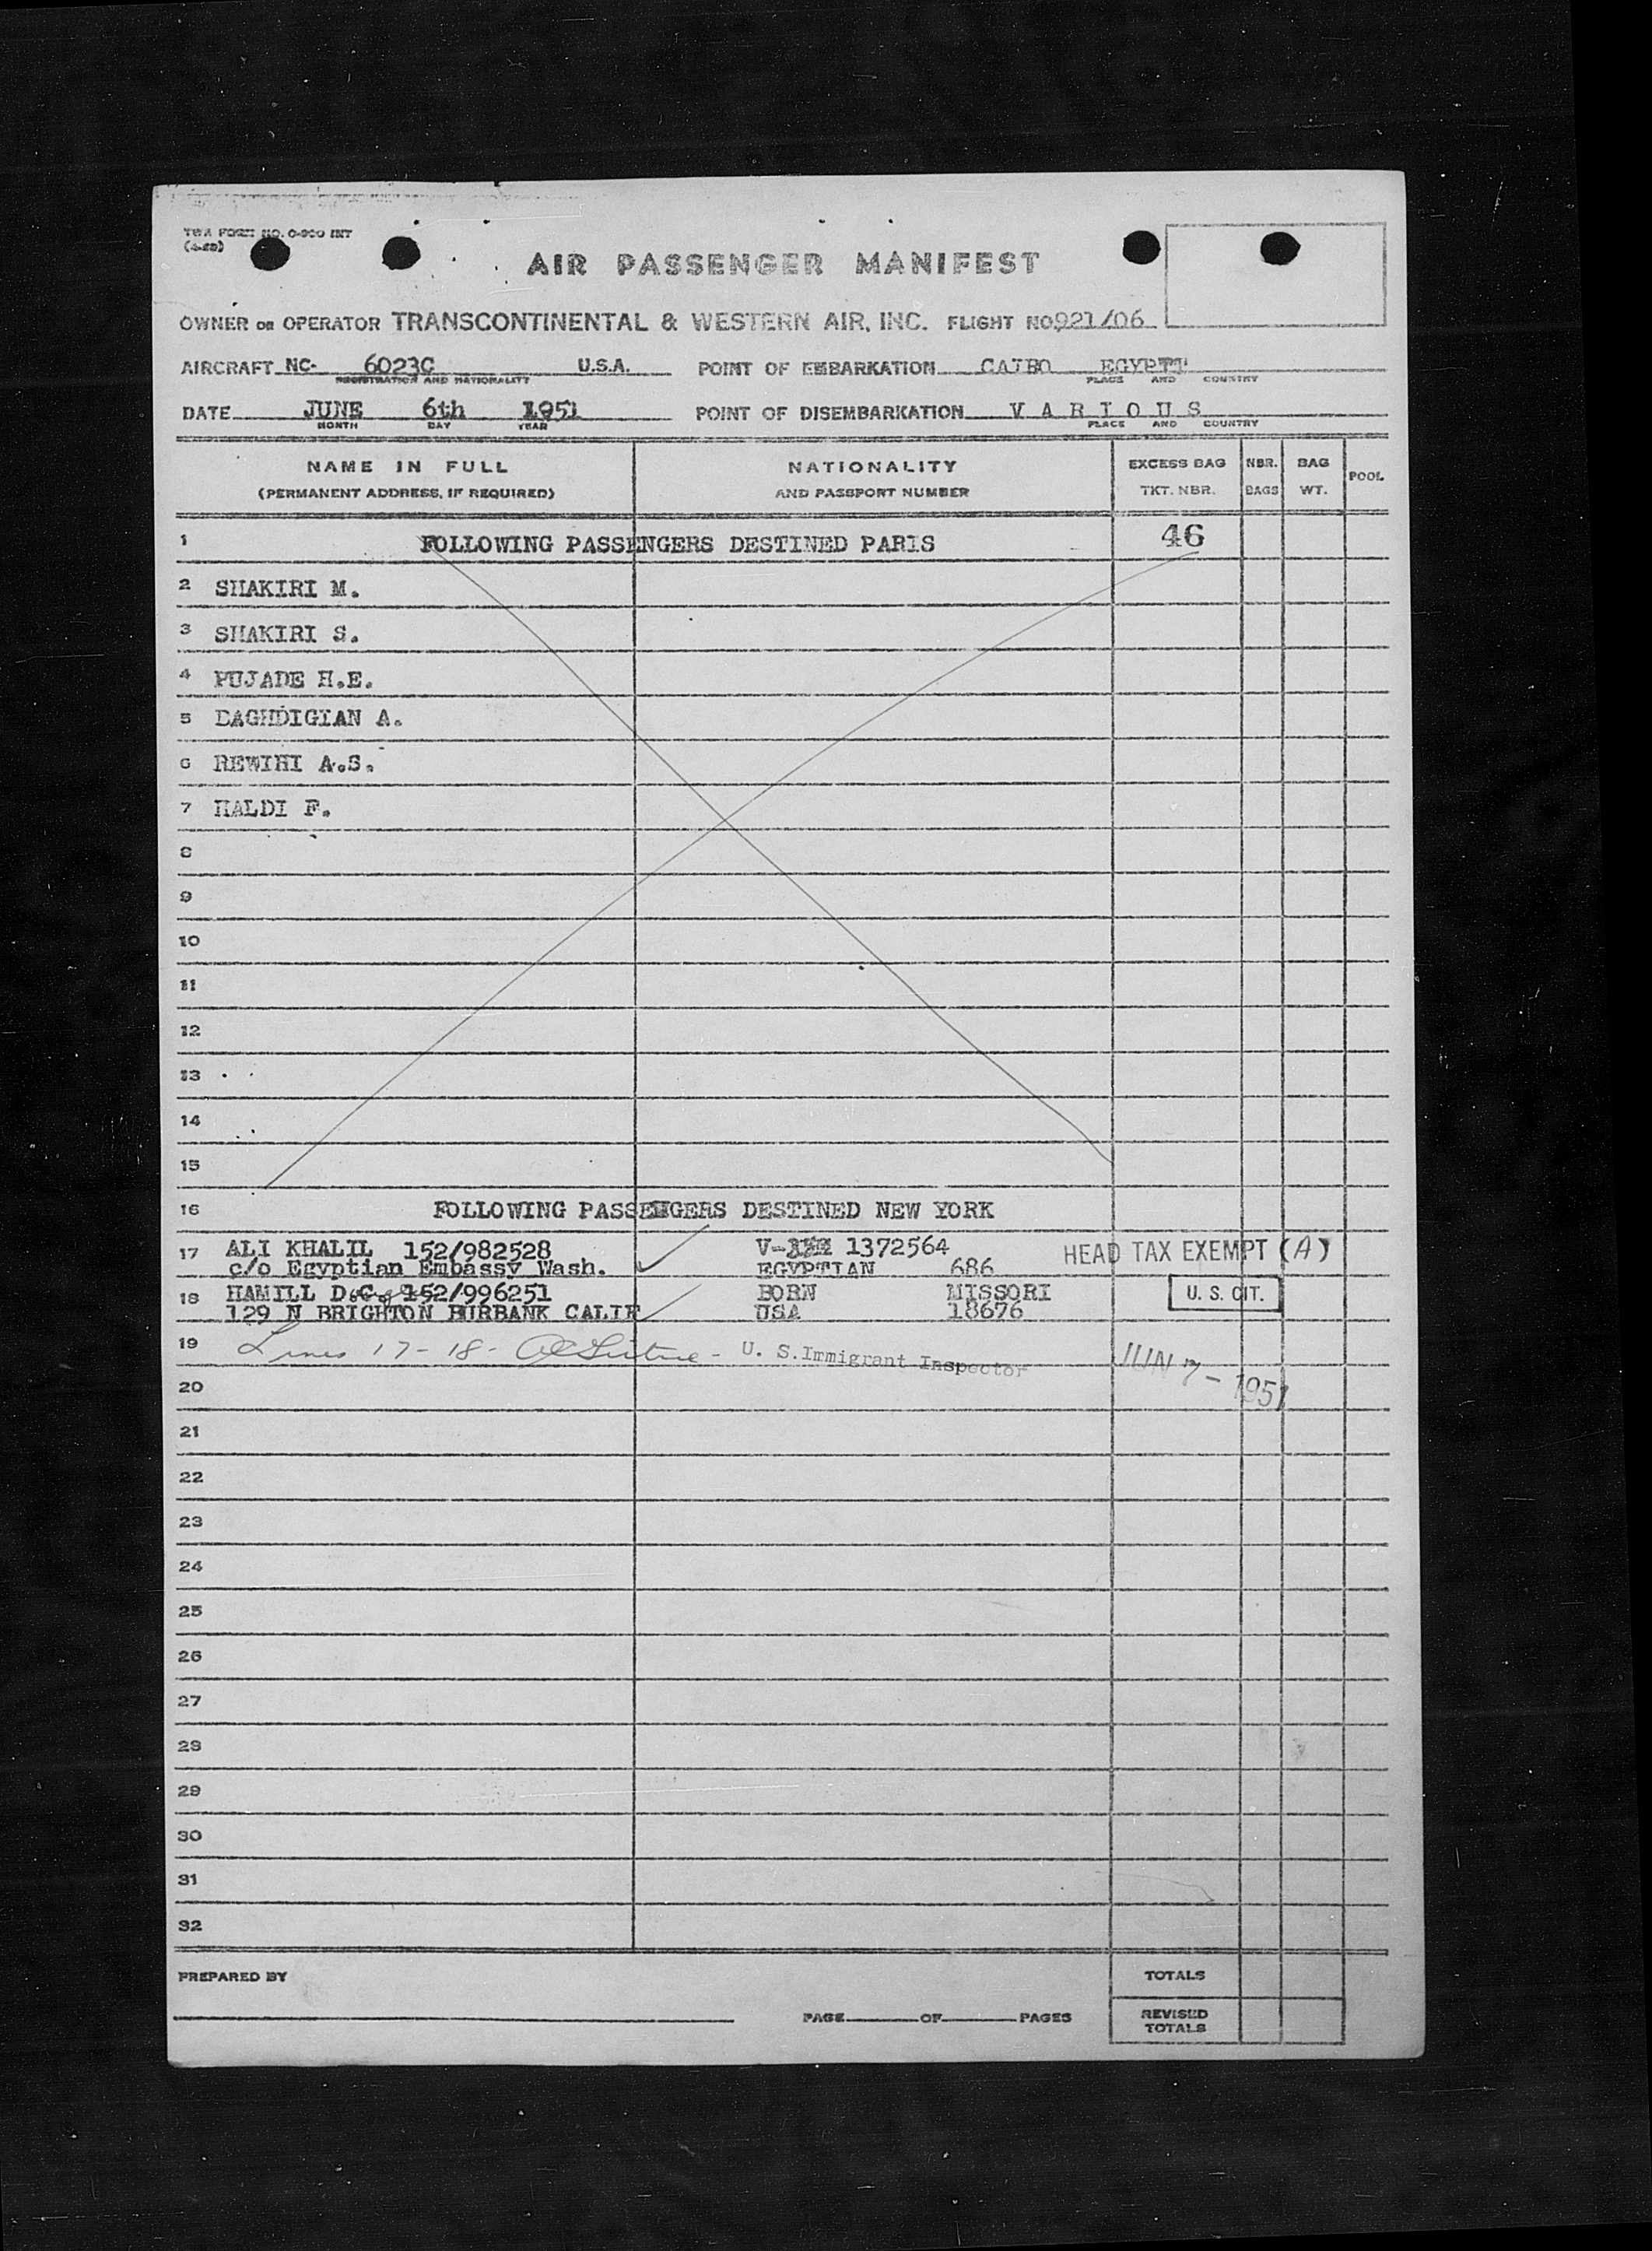 TWA FORM NO. O-900 INT
AIR PASSENGER MANIFEST
OWNER OR OPERATOR TRANSCONTINENTAL & WESTERN AIR, INC. FLIGHT NO. 921/06
AIRCRAFT NC- 6023C U.S.A. POINT OF EMBARKATION CAIRO EGYPTT
REGISTRATION AND NATIONALITY PLACE AND COUNTRY
DATE JUNE 6th 1951 POINT OF DISEMBARKATION VARIOUS
MONTH DAY YEAR PLACE AND COUNTRY
NAME IN FULL NATIONALITY EXCESS BAG NBR. BAG POOL
(PERMANENT ADDRESS, IF REQUIRED) AND PASSPORT NUMBER TKT. NBR. BAGS WT.
1 FOLLOWING PASSENGERS DESTINED PARIS 46
2 SHAKIRI M.
3 SHAKIRI S.
4 PUJADE H.E.
5 DAGHDIGIAN A.
6 REWIHI A.S.
7 HALDI F.
8
9
10
11
12
13
14
15
16 FOLLOWING PASSENGERS DESTINED NEW YORK
17 ALI KHALIL 152/982528 V- 1372564 HEAD TAX EXEMPT (A)
c/o Egyptian Embassy Wash. EGYPTIAN 686
18 HAMILL D.C. 152/996251 BORN MISSORI U. S. CIT.
129 N BRIGHTON BURBANK CALIF USA 18676
19 Lines 17-18- U. S. Immigrant Inspector JUN 7-1951
20
21
22
23
24
25
26
27
28
29
30
31
32
PREPARED BY TOTALS
PAGE OF PAGES REVISED
TOTALS